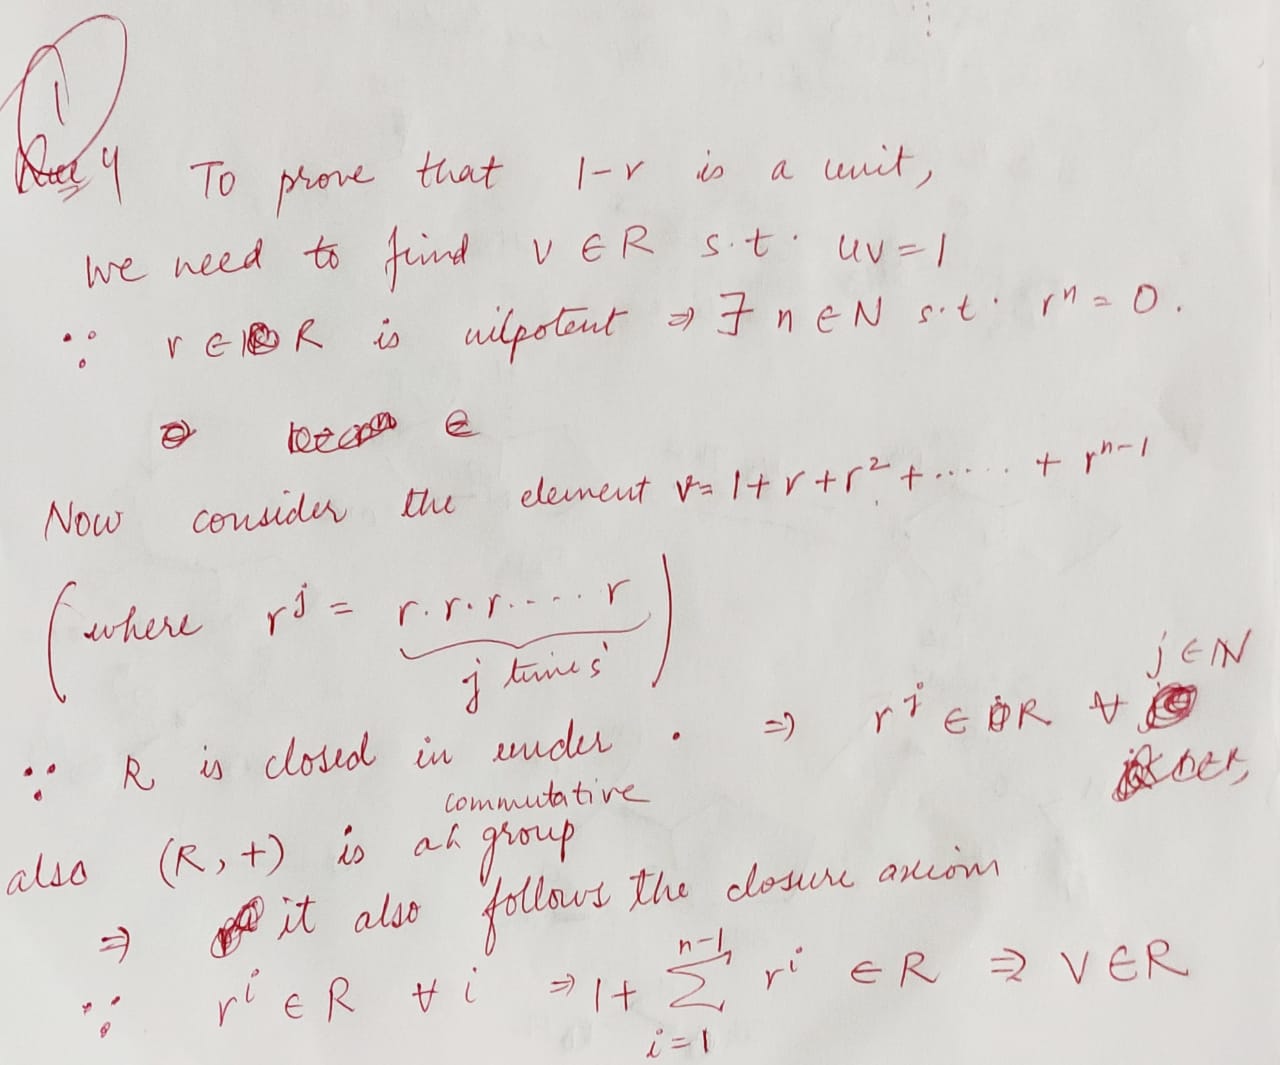 1
Que 4 To prove that 1-r is a unit,
we need to find v ∈ R s.t. uv = 1
∵ r ∈ R is nilpotent ⇒ ∃ n ∈ N s.t. r^n = 0.
⇒ ∈
Now consider the element v = 1 + r + r^2 + ..... + r^{n-1}
(where r^j = r.r.r.....r)
j times
j ∈ N
∵ R is closed in under . ⇒ r^j ∈ R ∀
commutative
also (R, +) is a group
⇒ it also follows the closure axiom
∵ r^i ∈ R ∀ i ⇒ 1 + \sum_{i=1}^{n-1} r^i ∈ R ⇒ V ∈ R